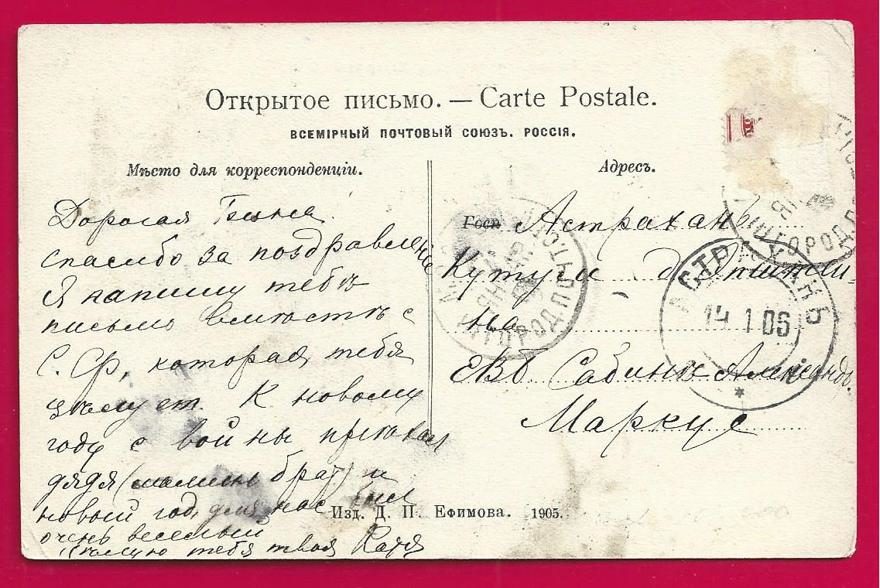 Открытое письмо. — Carte Postale.
ВСЕМІРНЫЙ ПОЧТОВЫЙ СОЮЗЪ. РОССІЯ.
Мѣсто для корреспонденціи.
Адресъ.
Дорогая
спасибо за поздравление
Я напишу тебѣ
письмо вмѣстѣ с
С. Ср, которая тебя
цѣлует. К новому
году с войны приехал
дядя (мамин брат) и
новый год для нас был
очень веселый
Цѣлую тебя твоя Катя
Госп
Астрахань
Кутум д.
на
ЕВБ Сабинѣ
Маркус
АСТРАХАНЬ
14 1 06
Изд. Д. П. Ефимова. 1905.